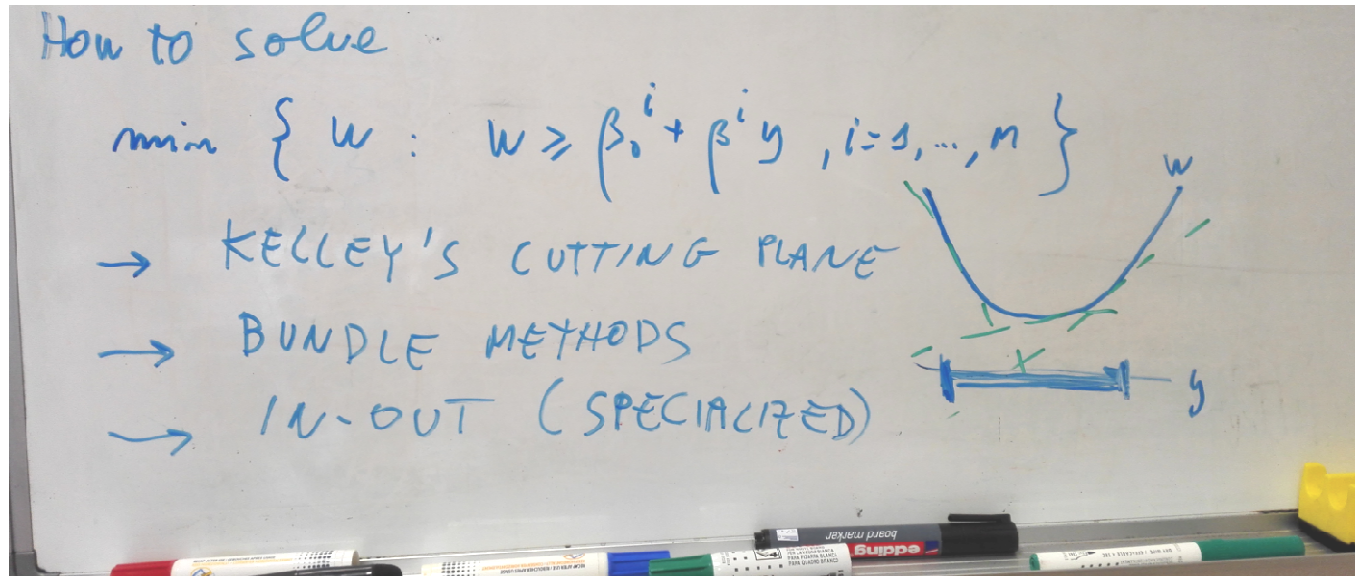 How to solve
min { w : w ≥ β₀ⁱ + βⁱ y , i = 1, ..., n }
w
→ KELLEY'S CUTTING PLANE
→ BUNDLE METHODS
y
→ IN-OUT (SPECIALIZED)
board marker
edding